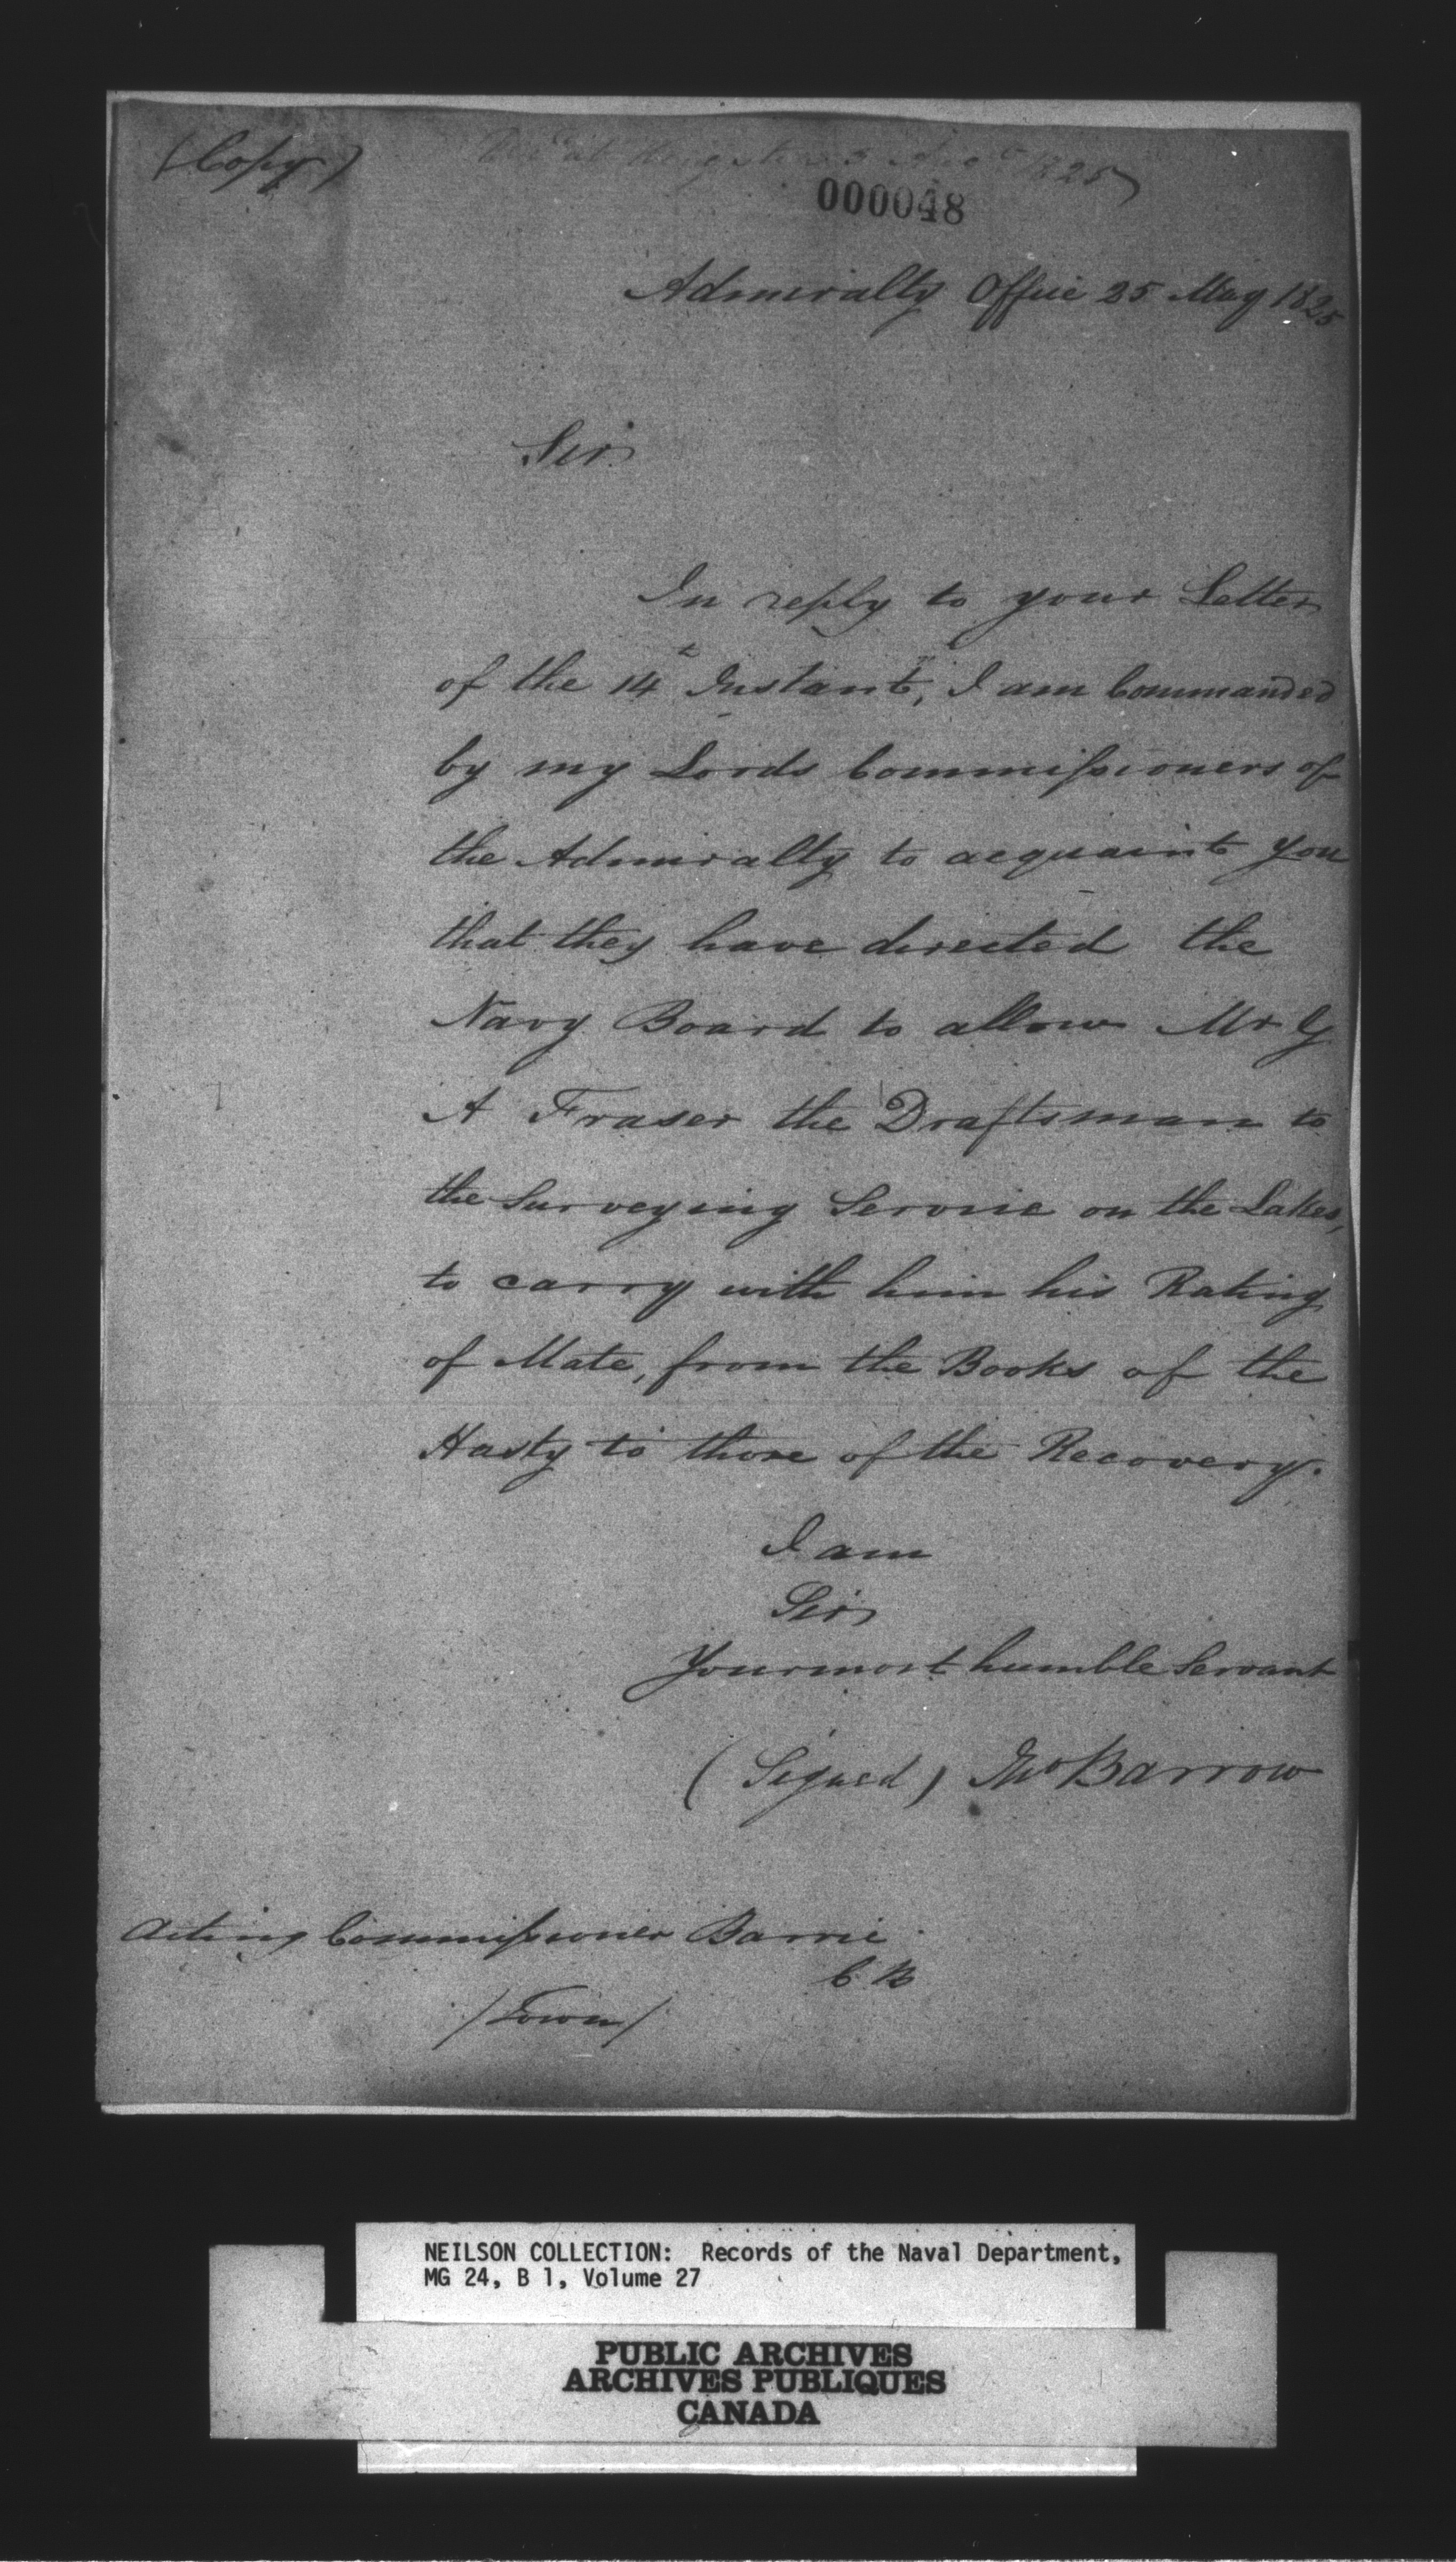 (Copy)
at Kingston 5 Augt 1825
000048
Admiralty Office 25 May 1825
Sir
In reply to your Letter
of the 14t Instant, I am Commanded
by my Lords Commissioners of
the Admiralty to acquaint you
that they have directed the
Navy Board to allow Mr G
A Fraser the Draftsman to
the Surveying Service on the Lakes,
to carry with him his Rating
of Mate, from the Books of the
Hasty to those of the Recovery.
I am
Sir
Your most humble Servant
(Signed) Jno Barrow
Acting Commissioner Barrie
C B
/Town/
NEILSON COLLECTION: Records of the Naval Department,
MG 24, B 1, Volume 27
PUBLIC ARCHIVES
ARCHIVES PUBLIQUES
CANADA